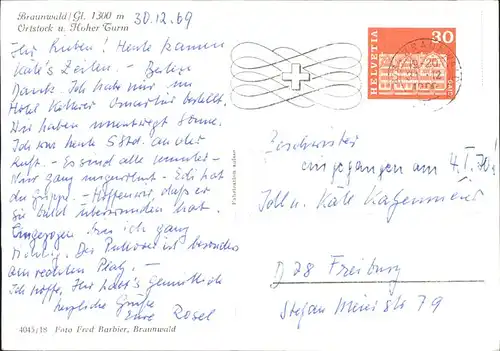 Braunwald/Gl. 1300 m 30.12.69
Ortstock u. Hoher Turm
Ihr Lieben! Heute kamen
Käte's Zeilen. – Besten
Dank. Ich habe mir im
Hotel bestellt.
Wir haben unentwegt Sonne.
Ich war heute 5 Std. an der
Luft. – Es sind alle munter –
Nur ganz ungewohnt – Edi hat
die Grippe. – Hoffen wir, daß er
sie bald überwunden hat.
Eingezogen bin ich ganz
richtig. Der Pullover ist besonders
am rechten Platz. –
Ich hoffe, Ihr habt's gemütlich
herzliche Grüße
Eure Rosel
4045/18 Foto Fred Barbier, Braunwald
HELVETIA
30
Geschwister
eingegangen am 4.I.70
Idll u. Käte Kagenmeier
D 78 Freiburg
Stefan Meier Str 79